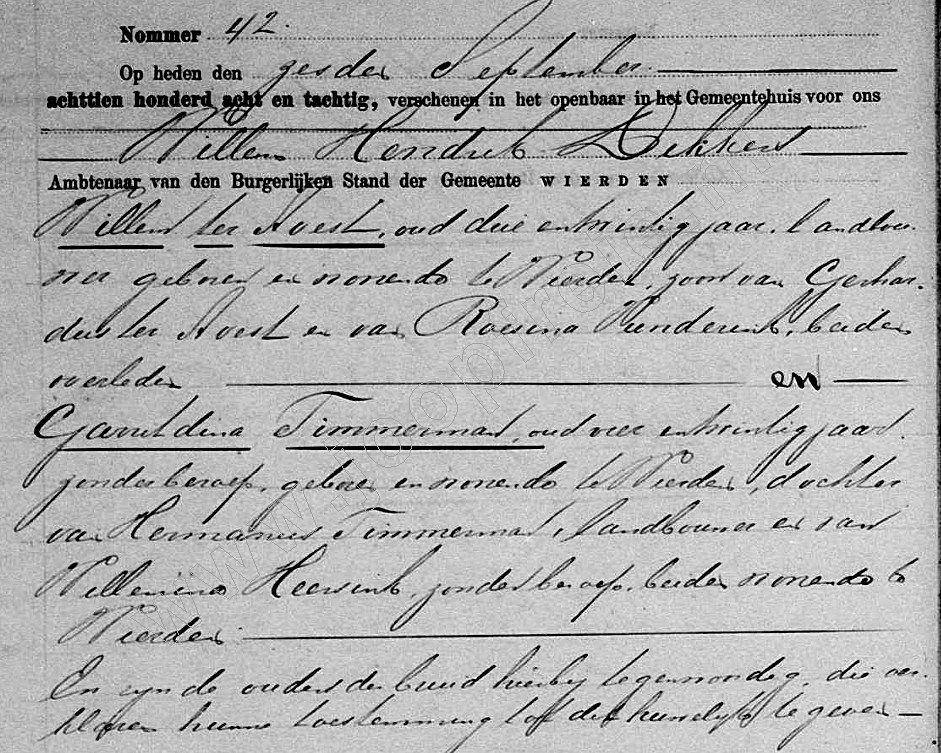 Nommer 42.
Op heden den zesden September
achttien honderd acht en tachtig, verschenen in het openbaar in het Gemeentehuis voor ons
Willem Hendrik Dikkers
Ambtenaar van den Burgerlijken Stand der Gemeente WIERDEN
Willem ter Avest, oud drie entwintig jaar, landbou-
wer geboren en wonende te Wierden, zoon van Gerhar-
dus ter Avest en van Roesina Wenderink, beiden
overleden en
Garritdina Timmerman, oud vier entwintig jaar.
zonder beroep, geboren en wonende te Wierden, dochter
van Hermannus Timmerman, landbouwer en van
Willemina Heersink, zonder beroep, beiden wonende te
Wierden.
En zijn de ouders der bruid hierbij tegenwoordig, die ver-
klaren hunne toestemming tot dit huwelijk te geven